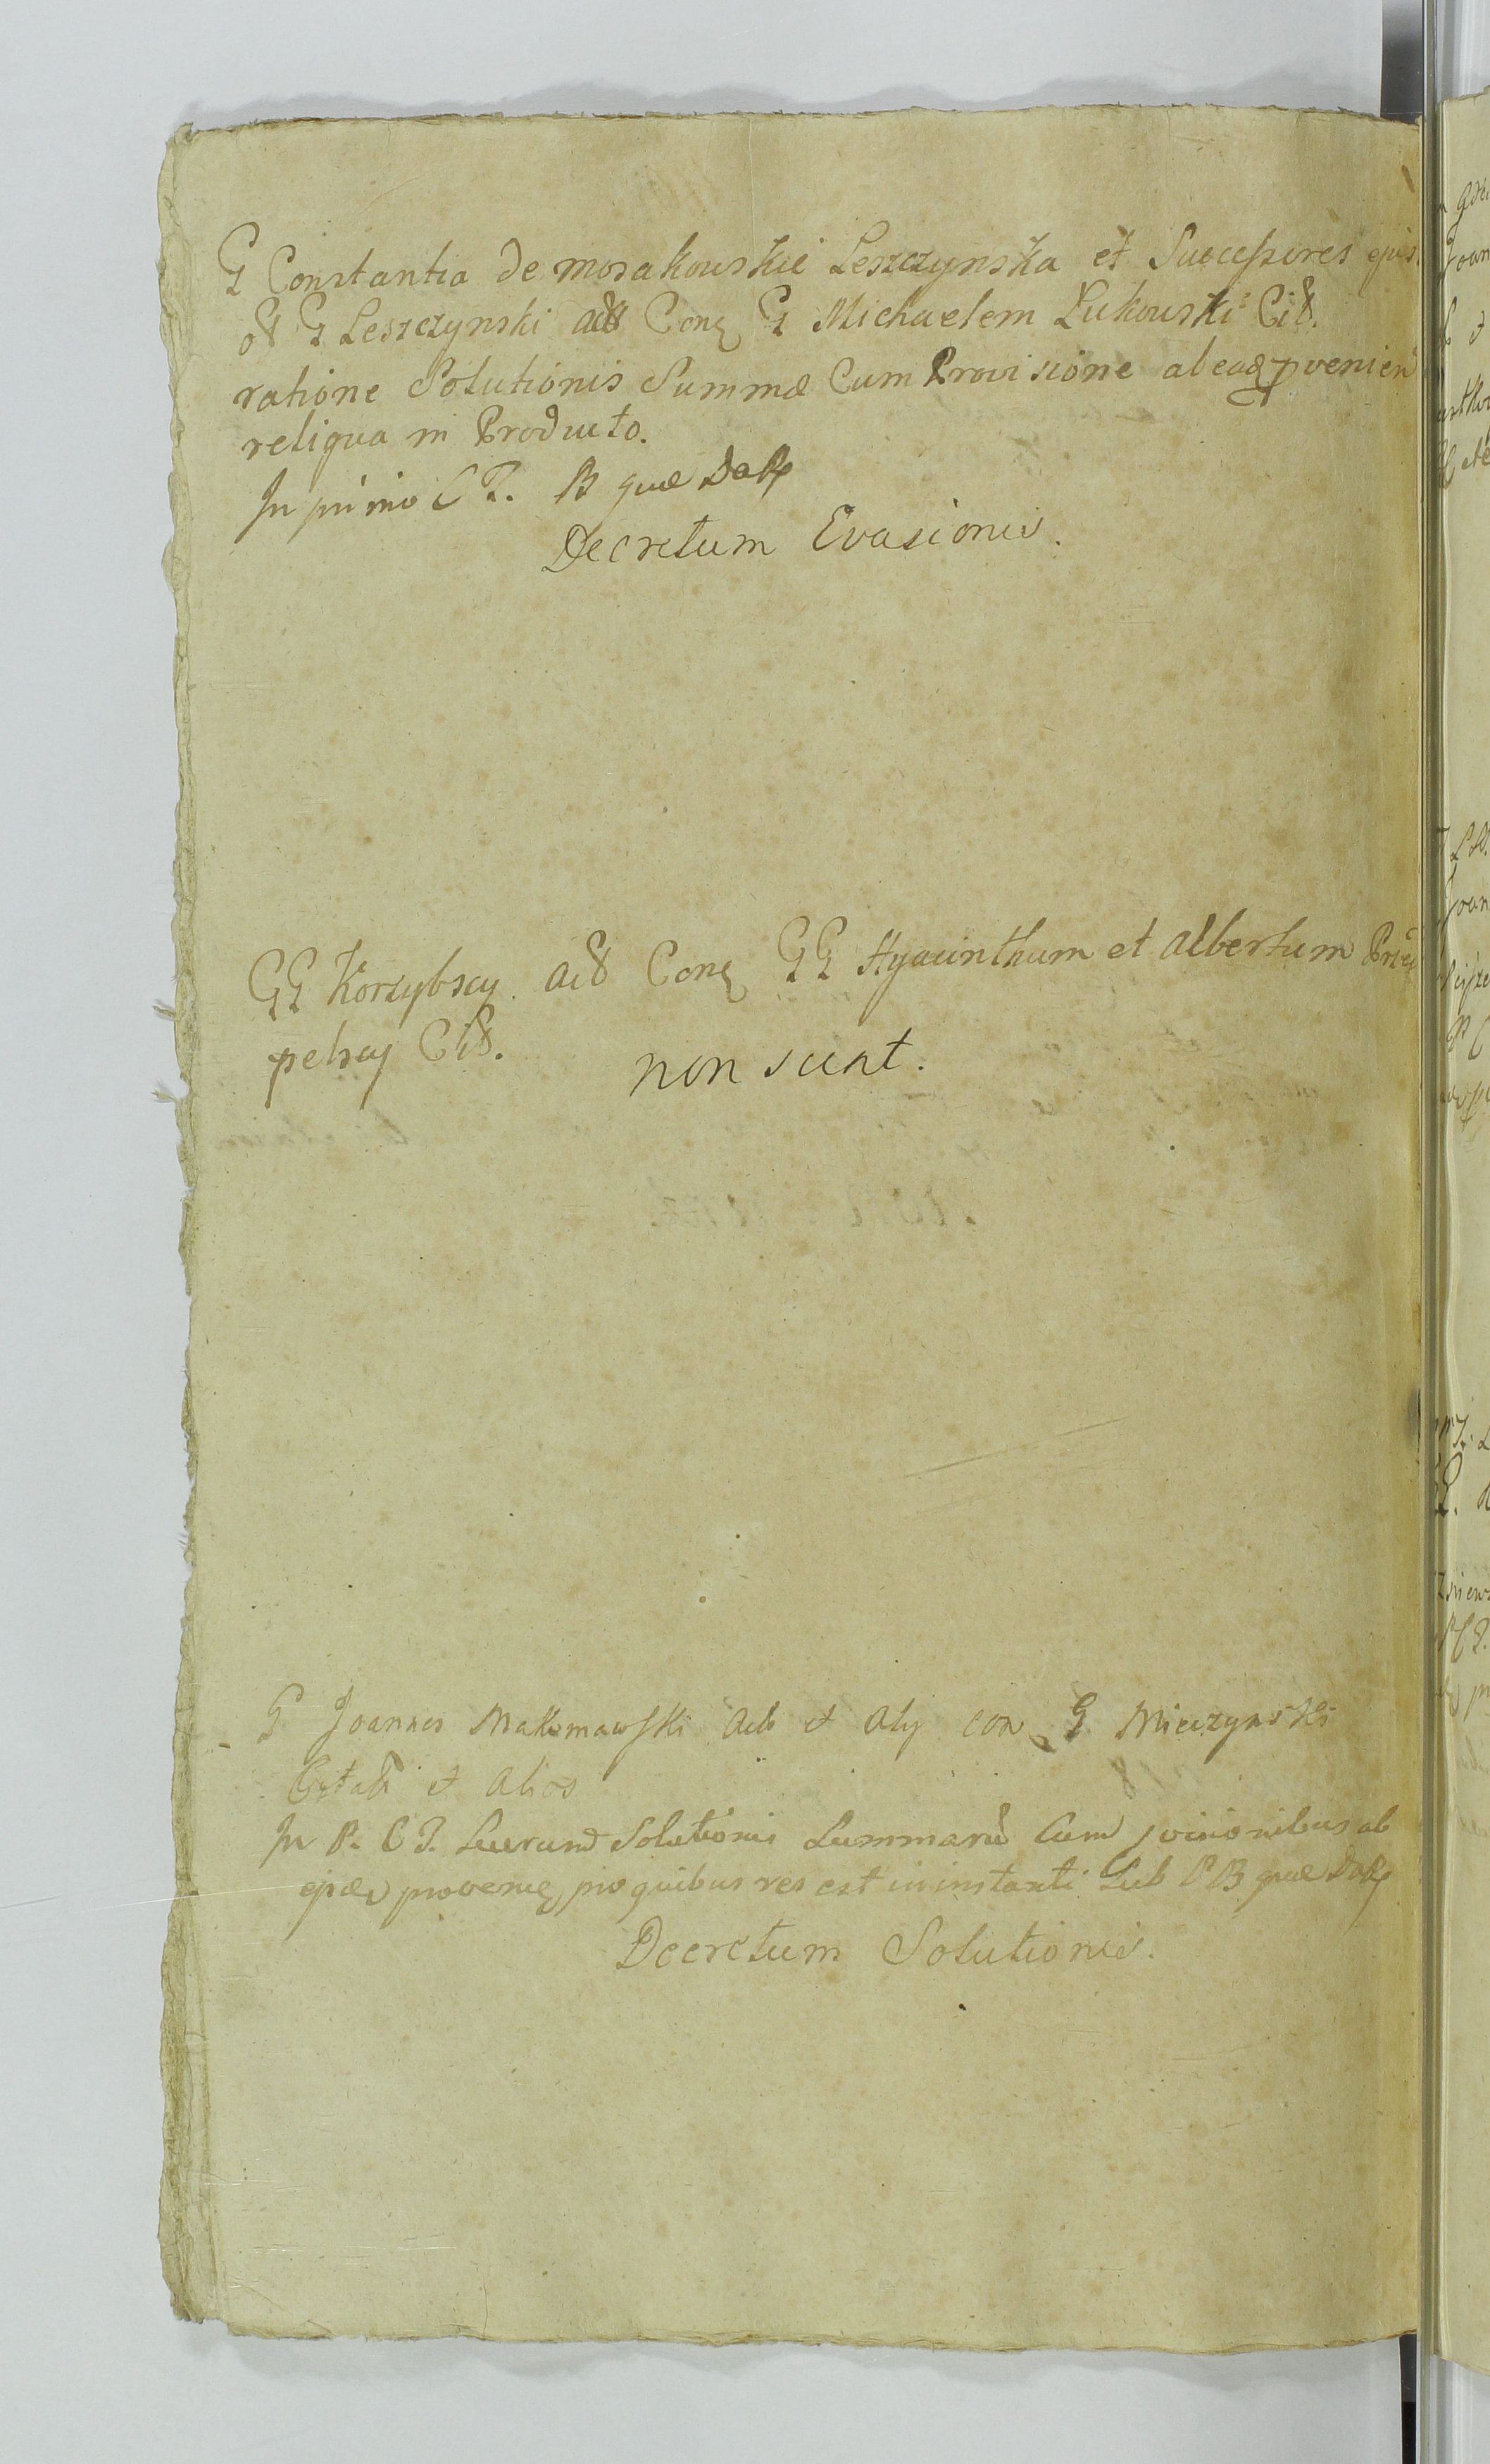 G Constantia de mosakowskie Leszczynska et Successores ejus
G Leszczynski Conq G Michaelem Lukowski Cit.
ratione Solutionis Summæ Cum Provisione ab eadq pvenien
reliqua in Producto.
In primo C T. B quæ
Decretum Evasionis.
GG Korzybscy Act Conq GG Hyacinthum et Albertum
pelscy Cit.
non sunt.
G Joannes Makomawski Act et Alij con G Mieczynski
et Alios
In P. C T. Solutionis Summaru Cum ab
pro quibus res est in instanti Sub P B quæ
Decretum Solutionis.